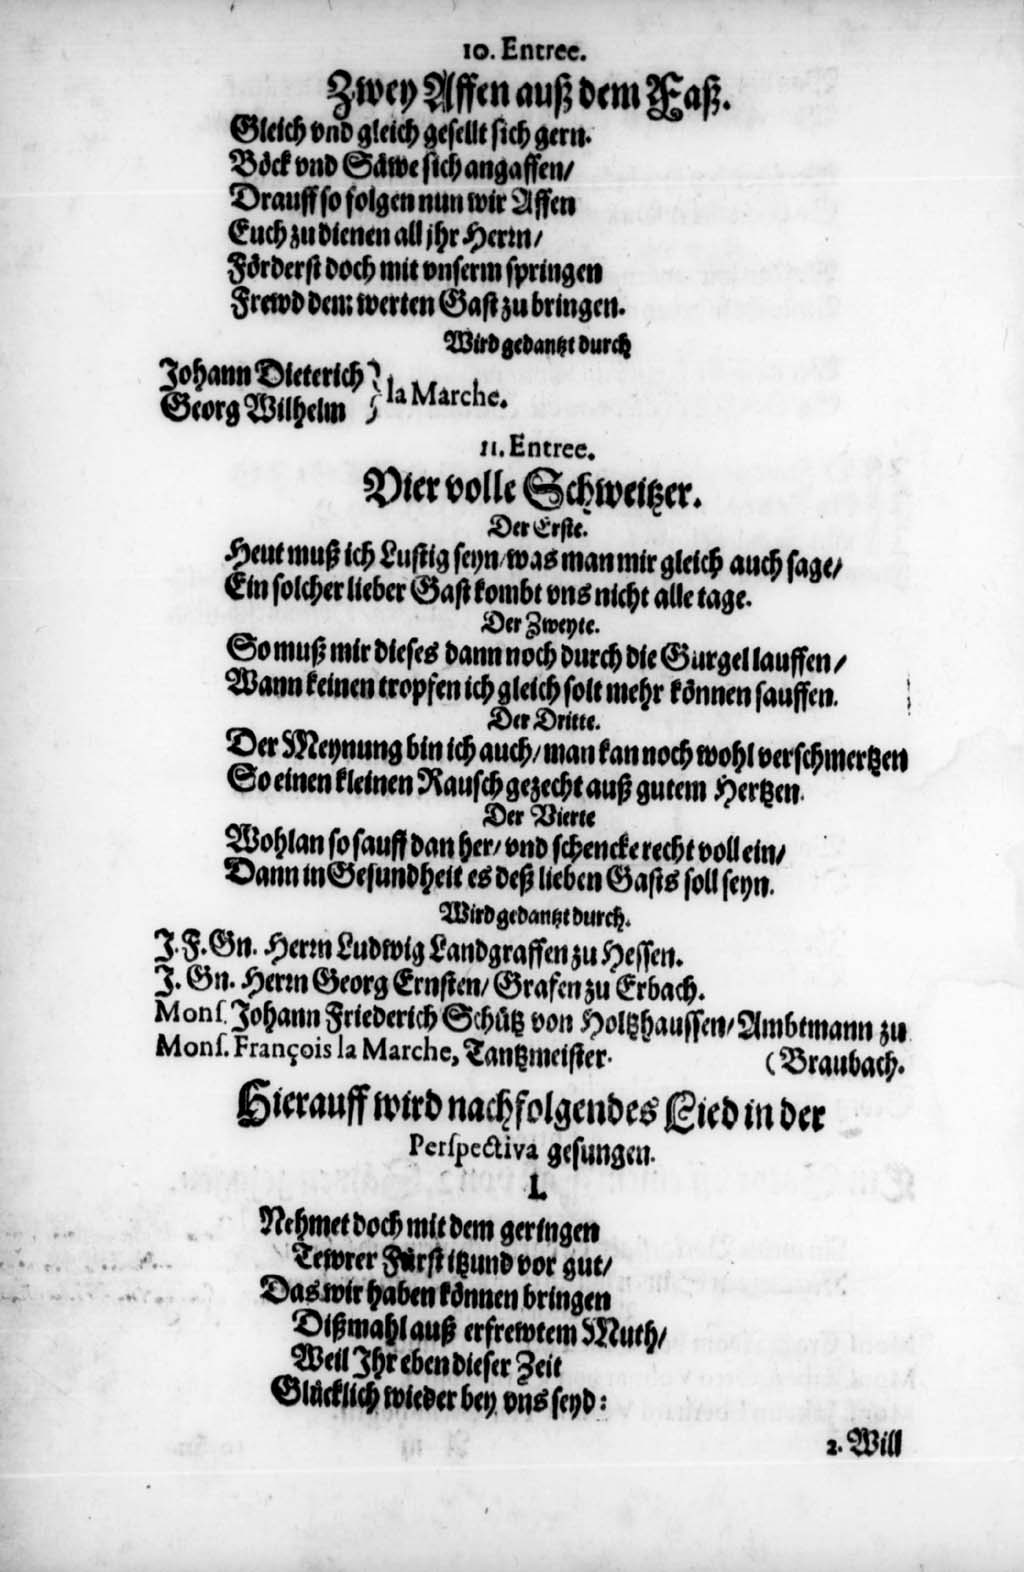 10. Entree.
Zwey Affen auß dem Faß.
Gleich vnd gleich gesellt sich gern.
Böck vnd Säwe sich angaffen/
Drauff so folgen nun wir Affen
Euch zu dienen all jhr Herrn/
Förderst doch mit vnserm springen
Frewd dem werten Gast zu bringen.
Wird gedantzt durch
Johann Dieterich }
Georg Wilhelm } la Marche.
11. Entree.
Vier volle Schweitzer.
Der Erste.
Heut muß ich Lustig seyn/was man mir gleich auch sage/
Ein solcher lieber Gast kombt vns nicht alle tage.
Der Zweyte.
So muß mir dieses dann noch durch die Gurgel lauffen/
Wann keinen tropfen ich gleich solt mehr können sauffen.
Der Dritte.
Der Meynung bin ich auch/man kan noch wohl verschmertzen
So einen kleinen Rausch gezecht auß gutem Hertzen.
Der Vierte
Wohlan so sauff dan her/ vnd schencke recht voll ein/
Dann in Gesundheit es deß lieben Gasts soll seyn.
Wird gedantzt durch.
J. F. Gn. Herrn Ludwig Landgraffen zu Hessen.
J. Gn. Herrn Georg Ernsten/ Grafen zu Erbach.
Monſ. Johann Friederich Schütz von Holtzhaussen/ Ambtmann zu
Monſ. François la Marche, Tantzmeister. (Braubach.
Hierauff wird nachfolgendes Lied in der
Perſpectiva gesungen.
I.
Nehmet doch mit dem geringen
Tewrer Fürst itzund vor gut/
Das wir haben können bringen
Dißmahl auß erfrewtem Muth/
Weil Jhr eben dieser Zeit
Glücklich wieder bey vns seyd:
2. Will